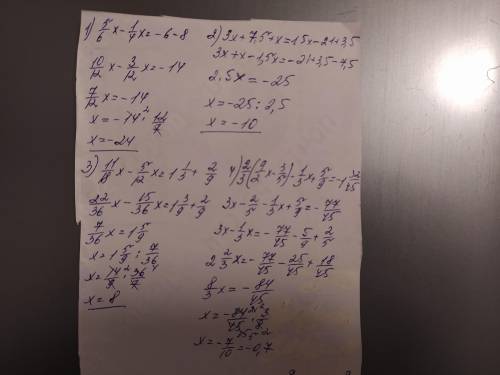 1) 5/6 x - 1/4 x = -6 - 8
10/12 x - 3/12 x = -14
7/12 x = -14
x = -14 · 12/7
x = -24
2) 3x + 7,5 + x = 1,5x - 21 + 3,5
3x + x - 1,5x = -21 + 3,5 - 7,5
2.5x = -25
x = -25 : 2,5
x = -10
3) 11/18 x - 5/12 x = 1 1/3 + 2/9
22/36 x - 15/36 x = 1 3/9 + 2/9
7/36 x = 1 5/9
x = 1 5/9 : 7/36
x = 14/9 · 36/7
x = 8
4) 2/3 (9/2 x - 3/5) - 1/3 x + 5/9 = -1 32/45
3x - 2/5 - 1/3 x + 5/9 = - 77/45
3x - 1/3 x = - 77/45 - 5/9 + 2/5
2 2/3 x = - 77/45 - 25/45 + 18/45
8/3 x = - 84/45
x = - 84/45 · 3/8
x = - 7/10 = -0,7